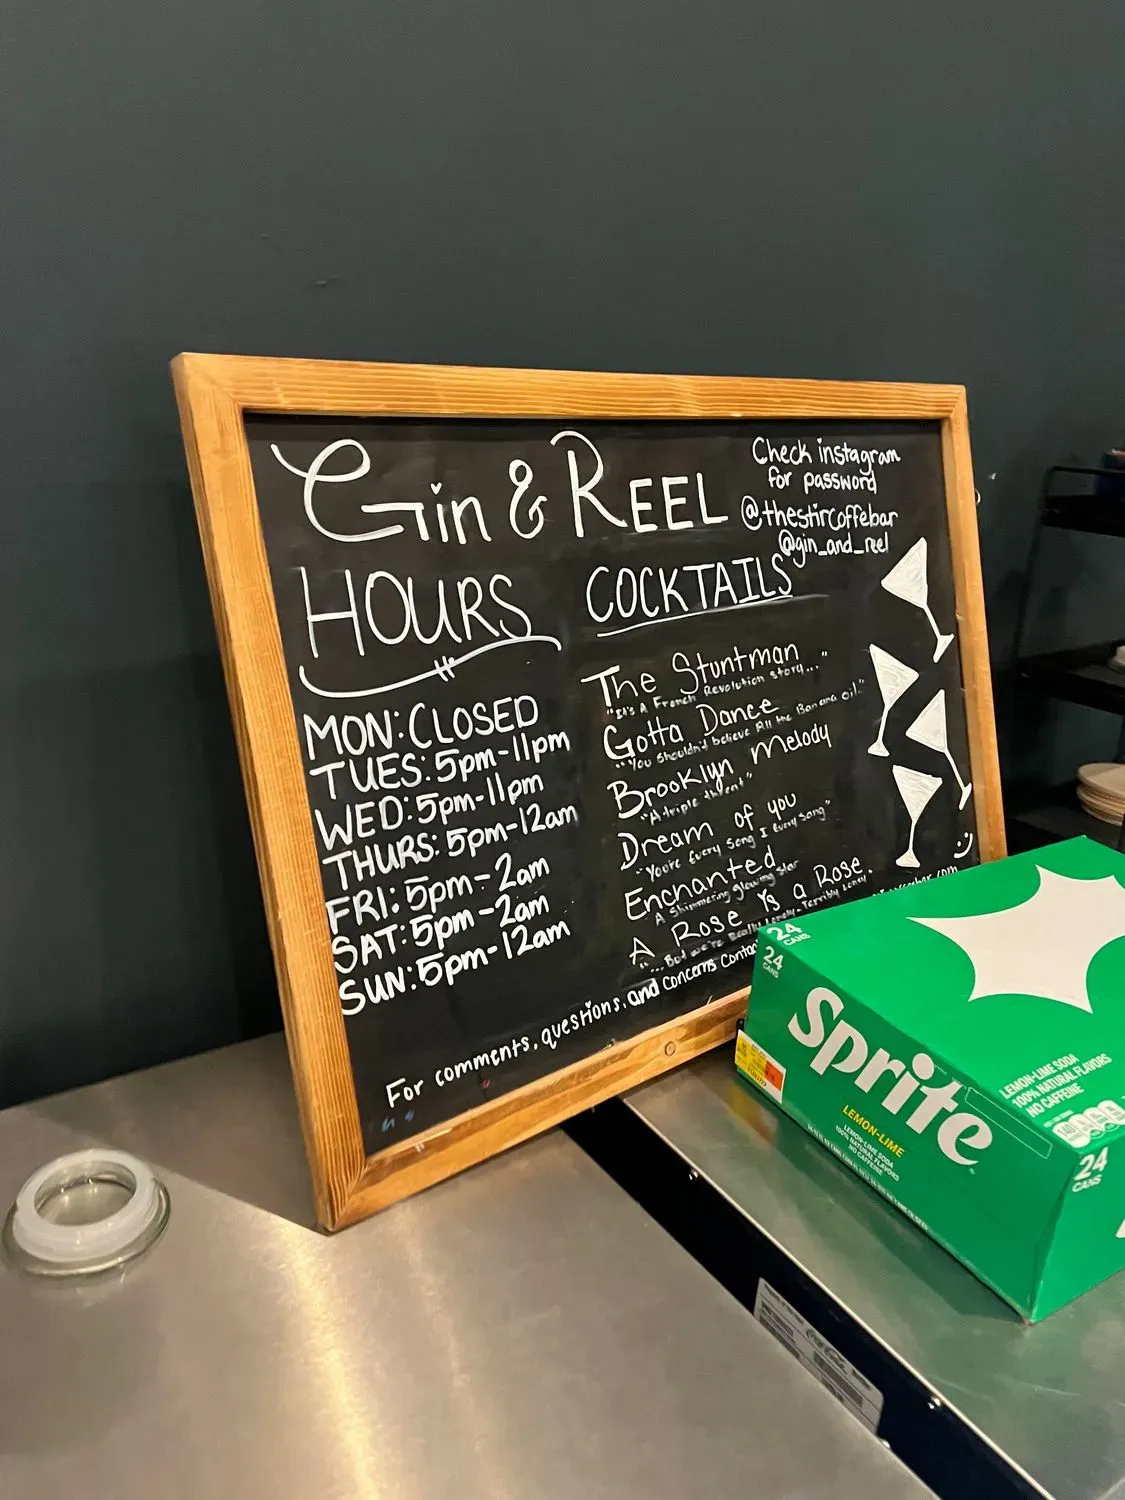 Gin & REEL
Check instagram
for password
@thestircoffebar
@gin_and_reel
HOURS
MON: CLOSED
TUES: 5pm-11pm
WED: 5pm-11pm
THURS: 5pm-12am
FRI: 5pm-2am
SAT: 5pm-2am
SUN: 5pm-12am
COCKTAILS
The Stuntman
"It's A French Revolution story..."
Gotta Dance
"You Shouldn't believe All the Banana oil."
Brooklyn Melody
"A triple threat"
Dream of you
"You're Every Song I Every Sang"
Enchanted
A Shimmering glowing star
A Rose is a Rose.
"...But we're Really Lonely-Terribly Lonely
For comments, questions, and concerns
24
CANS
24
CANS
Sprite
LEMON-LIME
LEMON-LIME SODA
100% NATURAL FLAVORS
NO CAFFEINE
LEMON-LIME SODA
100% NATURAL FLAVORS
NO CAFFEINE
24
CANS